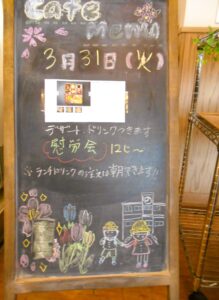 CAFE
MEMO
3月31日(火)
デザート、ドリンクつきます
慰労会 12じ〜
※ランチドリンクの注文は朝できます!!